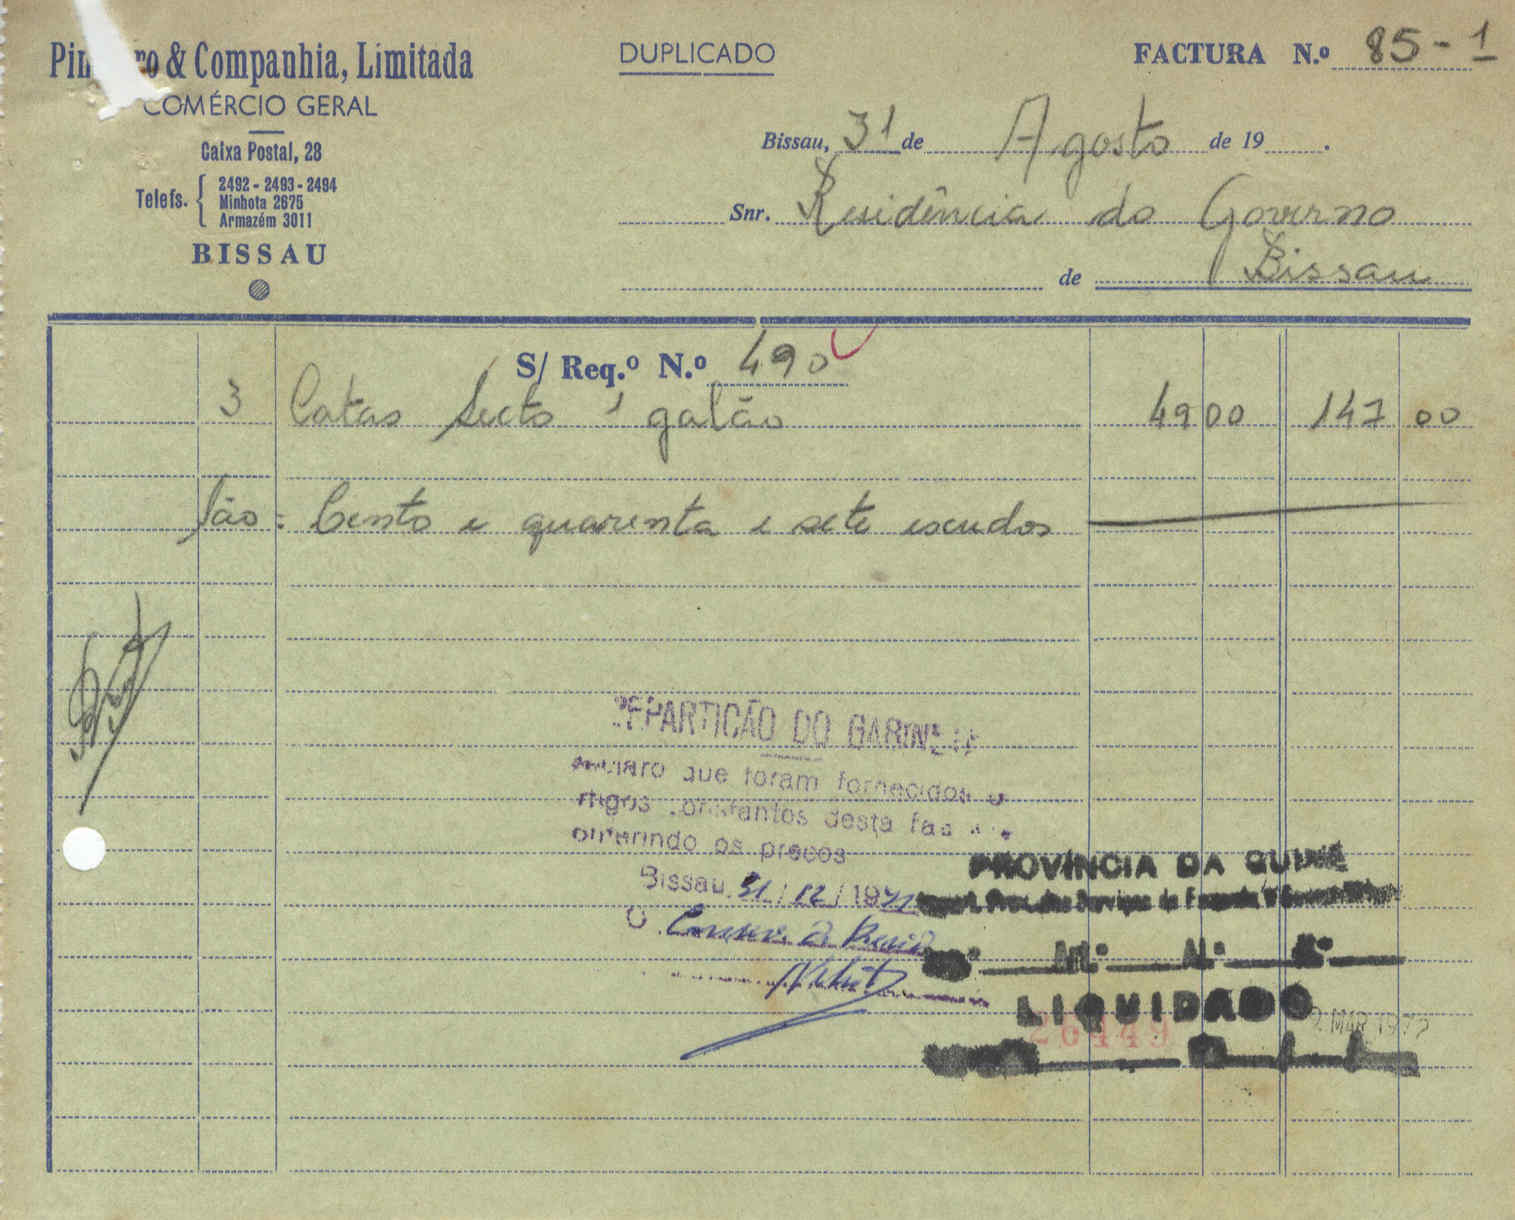 & Companhia, Limitada
COMÉRCIO GERAL
Caixa Postal, 28
Telefs. 2492 - 2493 - 2494
Minhota 2675
Armazém 3011
BISSAU
DUPLICADO
FACTURA N.º 85-1
Bissau, 31 de Agosto de 19
Snr. Residência do Governo
de Bissau
S/ Req.º N.º 490
3 Latas Secto 1 galão 49 00 147 00
São: Cento e quarenta e sete escudos
REPARTIÇÃO DO GABINETE
que foram fornecidos
constantes desta
os preços
Bissau, 31/12/1971
O
PROVÍNCIA DA GUINÉ
Art.º N.º
LIQUIDADO
26449
2 MAR 1972